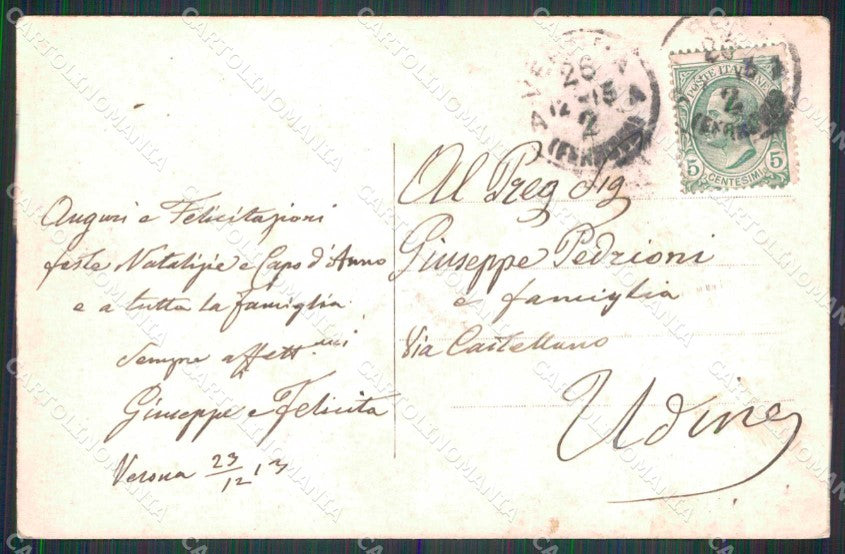 Auguri e Felicitazioni
feste Natalizie e Capo d'Anno
e a tutta la famiglia
Sempre affett.mi
Giuseppe e Felicita
Verona 23/12 13
Al Preg Sig
Giuseppe Pedrioni
e famiglia
Via Castellano
Udine
26
12
2
(FERROVIA)
POSTE ITALIANE
5 CENTESIMI 5
CARTOLINOMANIA